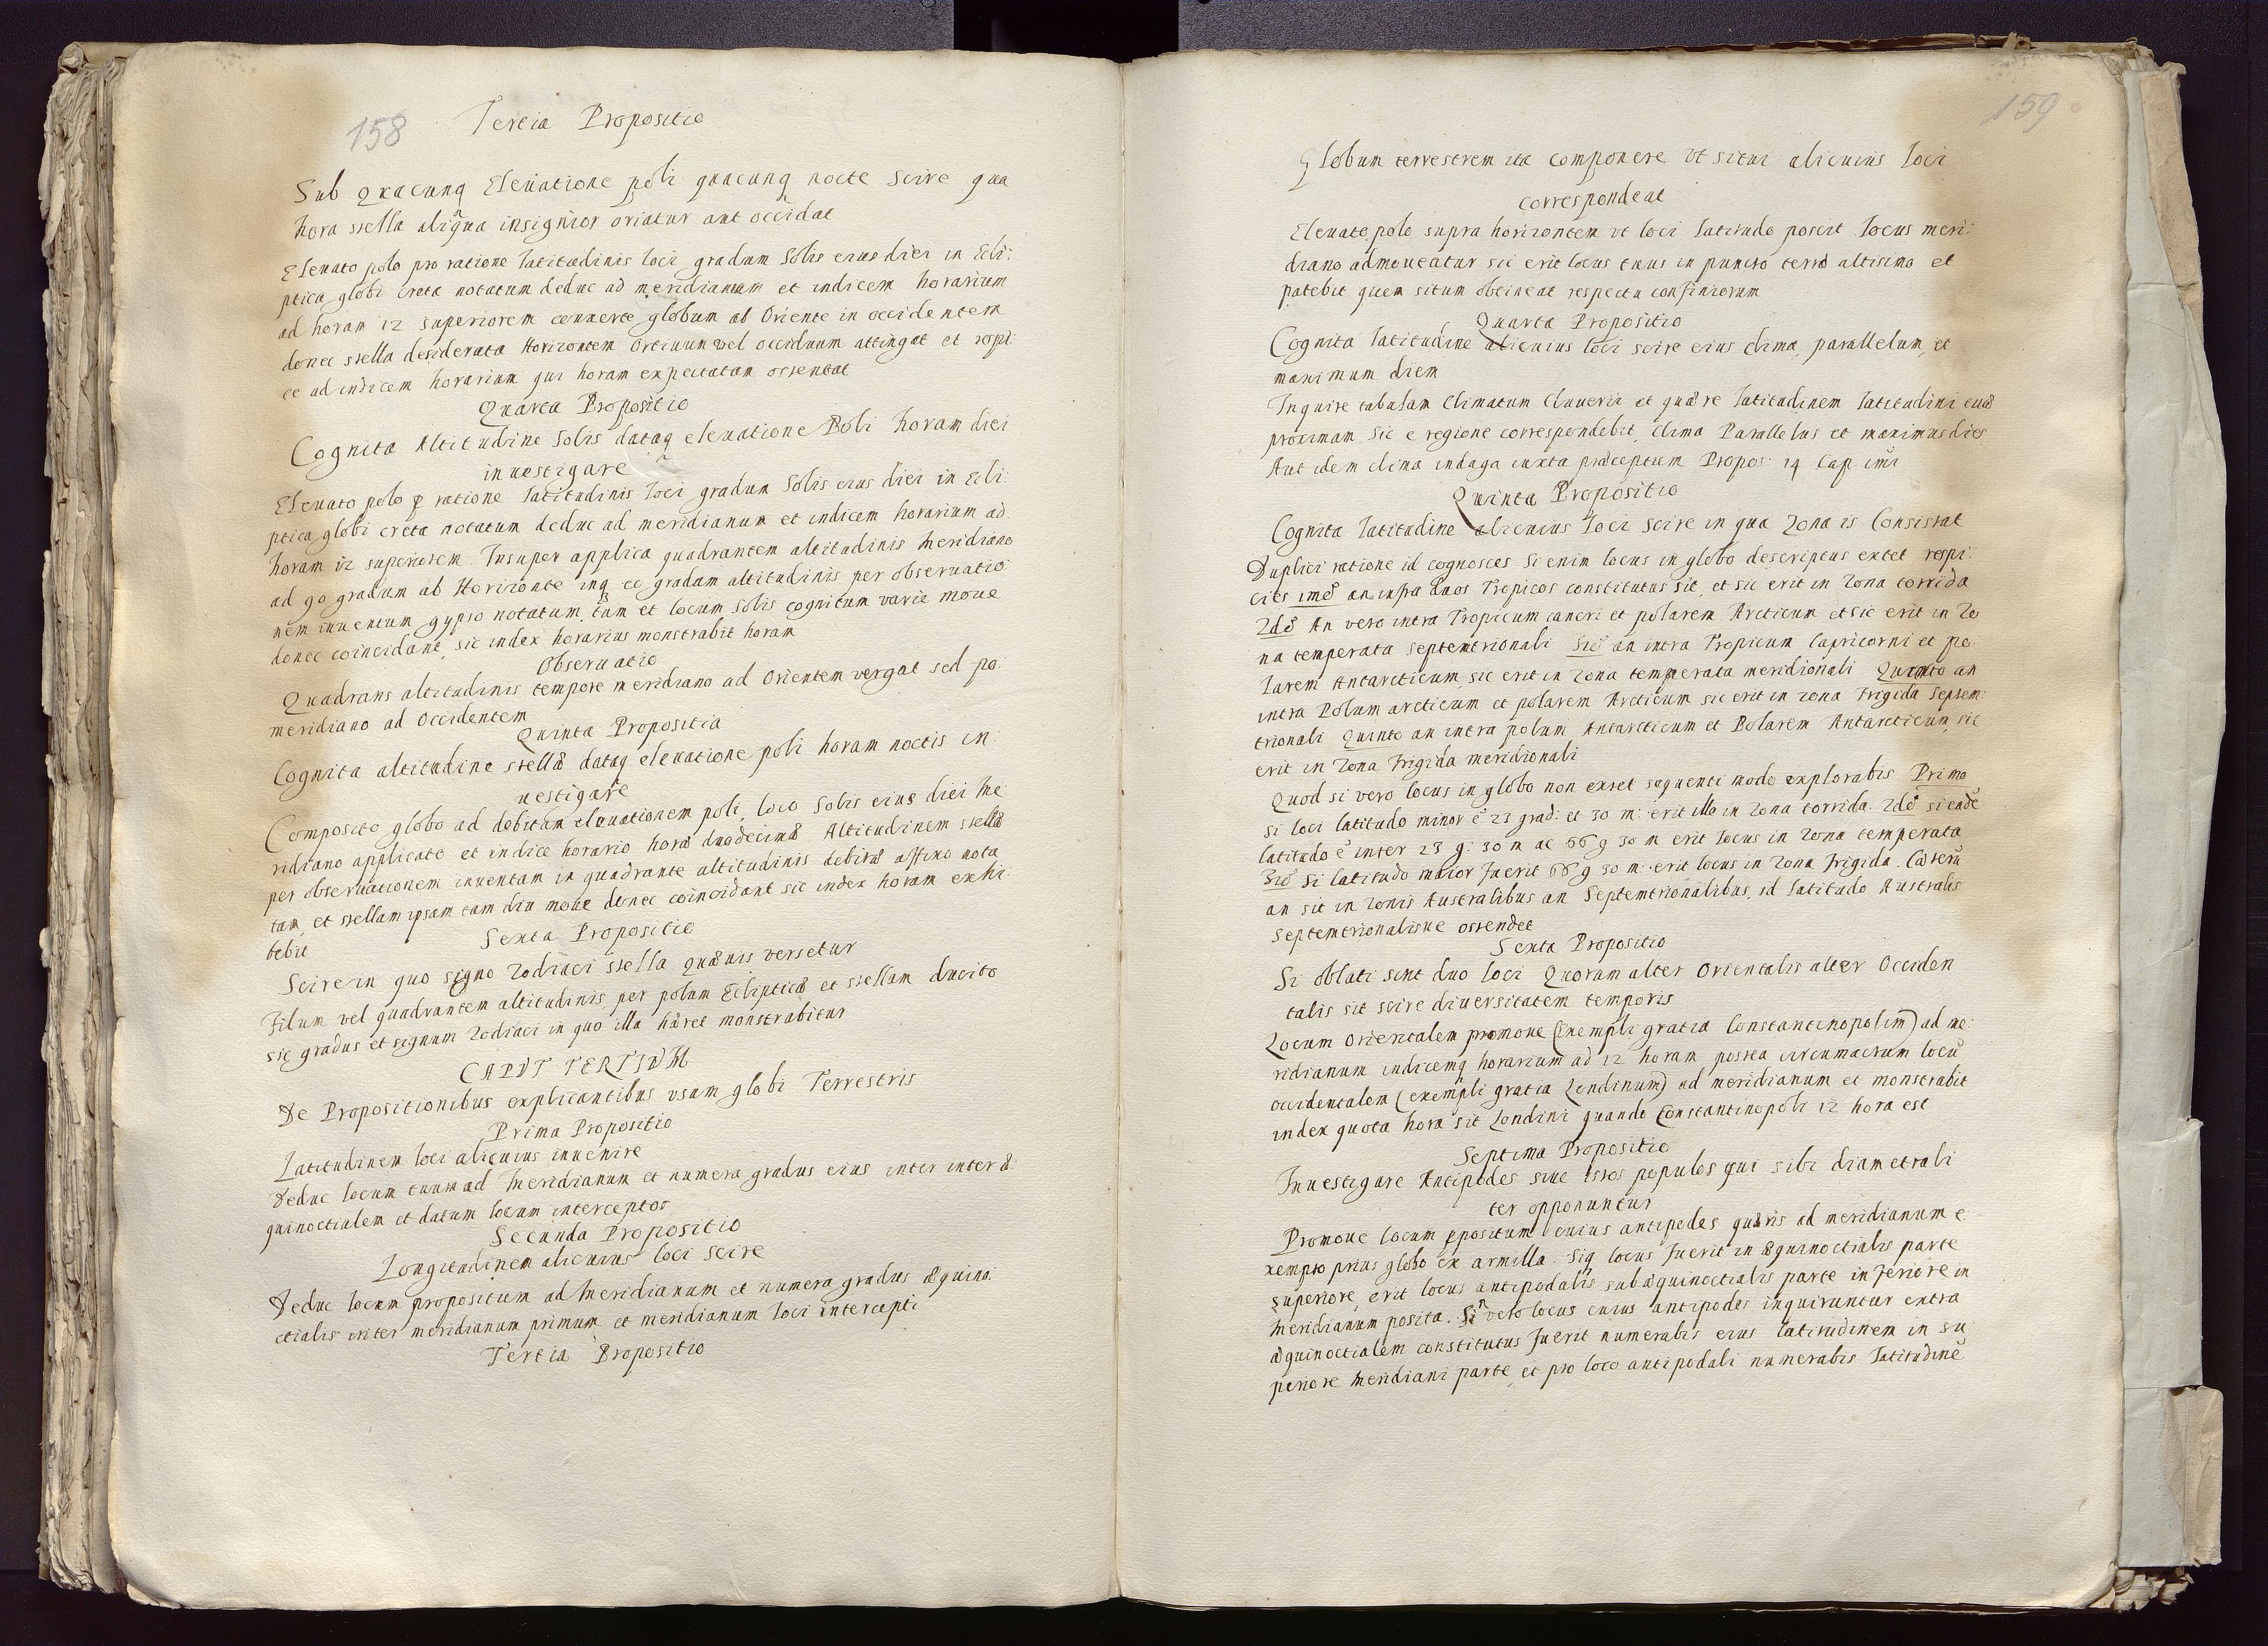 158
Tertia Propositio
Sub Quacunq Eleuatione poli quacunq nocte Scire qua
hora stella aliqua insignior oriatur aut occidat
Eleuato polo pro ratione latitudinis loci gradum Solis eius diei in Ecli:
ptica globi creta notatum deduc ad meridianum et indicem horarium
ad horam 12 superiorem conuerte globum ab Oriente in occidentem
donec stella desiderata Horizontem Ortiuum vel occiduum attingat et respi
ce ad indicem horarium qui horam expectatam ostentat
Quarta Propositio
Cognita Altitudine Solis dataq eleuatione Poli horam diei
inuestigare
Eleuato polo p ratione latitudinis loci gradum Solis eius diei in Ecli:
ptica globi creta notatum deduc ad meridianum et indicem horarium ad
horam 12 superiorem. Insuper applica quadrantem altitudinis Meridiano
ad 90 gradum ab Horizonte inq eo gradum altitudinis per obseruatio
nem inuentum gypso notatum, tum et locum Solis cognitum varie moue
donec coincidant, sic index horarius monstrabit horam
Obseruatio
Quadrans altitudinis tempore meridiano ad Orientem vergat sed po:
meridiano ad Occidentem
Quinta Propositia
Cognita altitudine stellæ dataq eleuatione poli horam noctis in:
uestigare
Composito globo ad debitam eleuationem poli, loco Solis eius diei Me
ridiano applicato et indice horario horæ duodecimæ Altitudinem stellæ
per obseruationem inuentam in quadrante altitudinis debitæ affixo nota
tam, et stellam ipsam tam diu moue donec coincidant sic index horam exhi:
bebit
Sexta Propositio
Scire in quo signo Zodiaci stella quæuis versetur
Filum vel quadrantem altitudinis per polum Eclipticæ et stellam ducito
sic gradus et signum Zodiaci in quo illa hæret monstrabitur
CAPVT TERTIVM
De Propositionibus explicantibus vsum globi Terrestris
Prima Propositio
Latitudinem loci alicuius inuenire
Deduc locum tuum ad Meridianum et numera gradus eius inter inter æ:
quinoctialem et datum locum interceptos
Secunda Propositio
Longitudinem alicuius loci scire
Deduc locum propositum ad Meridianum et numera gradus æquino:
ctialis inter meridianum primum et meridianum loci intercepti
Tertia Propositio
159
Globum terrestrem ita componere vt situi alicuius loci
correspondeat
Eleuato polo supra horizontem vt loci latitudo poscit locus meri:
diano admoueatur sic erit locus tuus in puncto terræ altissimo et
patebit quem situm obtineat respectu confiniorum
Quarta Propositio
Cognita latitudine alicuius loci scire eius clima, parallelum, et
maximum diem
Inquire tabulam Climatum Cluuerii et quære latitudinem latitudini tuæ
proximam Sic e regione correspondebit, Clima Parallelus et maximus dies
Aut idem clima indaga iuxta præceptum Propos: 14 Cap imi
Quinta Propositio
Cognita latitudine alicuius loci scire in qua Zona is Consistat
Duplici ratione id cognosces Si enim locus in globo descriptus extet respi:
cies imo an infra duos Tropicos constitutus sit, et sic erit in Zona torrida
2do An vero intra Tropicum cancri et polarem Arcticum et sic erit in Zo
na temperata septemtrionali 3io an intra Tropicum Capricorni et po
larem Antarcticum, sic erit in Zona temperata meridionali Quarto an
intra Polum arcticum et polarem Arcticum sic erit in zona Frigida Septem:
trionali Quinto an intra polum Antarcticum et Polarem Antarcticum, sic
erit in Zona Frigida meridionali
Quod si vero locus in globo non extet sequenti modo explorabis Primo
Si loci latitudo minor ē 23 grad: et 30 m: erit ille in Zona torrida. 2do si eadē
latitudo ē inter 23 g: 30 m ac 66 g 30 m erit locus in Zona temperata
3io Si latitudo maior fuerit 66 g 30 m: erit locus in Zona Frigida. Cæterū
an sit in Zonis Australibus an Septemtrionalibus, id latitudo Australis
septemtrionalisue ostendet
Sexta Propositio
Si oblati sint duo loci Quorum alter Orientalis alter Occiden
talis sit scire diuersitatem temporis
Locum Orientalem promoue (Exempli gratia Constantinopolim) ad me:
ridianum indicemq horarium ad 12 horam postea circumactum locū
occidentalem (exempli gratia Londinum) ad meridianum et monstrabit
index quota hora sit Londini quando Constantinopoli 12 hora est
Septima Propositio
Inuestigare Antipodes siue istos populos qui sibi diametrali
ter opponuntur
Promoue locum ppositum cuius antipodes quæris ad meridianum e
xempto prius globo ex armilla. Siq locus fuerit in æquinoctialis parte
superiore, erit locus antipodalis sub æquinoctialis parte inferiore in
Meridianum posita. Si vero locus cuius antipodes inquiruntur extra
æquinoctialem constitutus fuerit numerabis eius latitudinem in su
periore Meridiani parte, et pro loco antipodali numerabis latitudinē